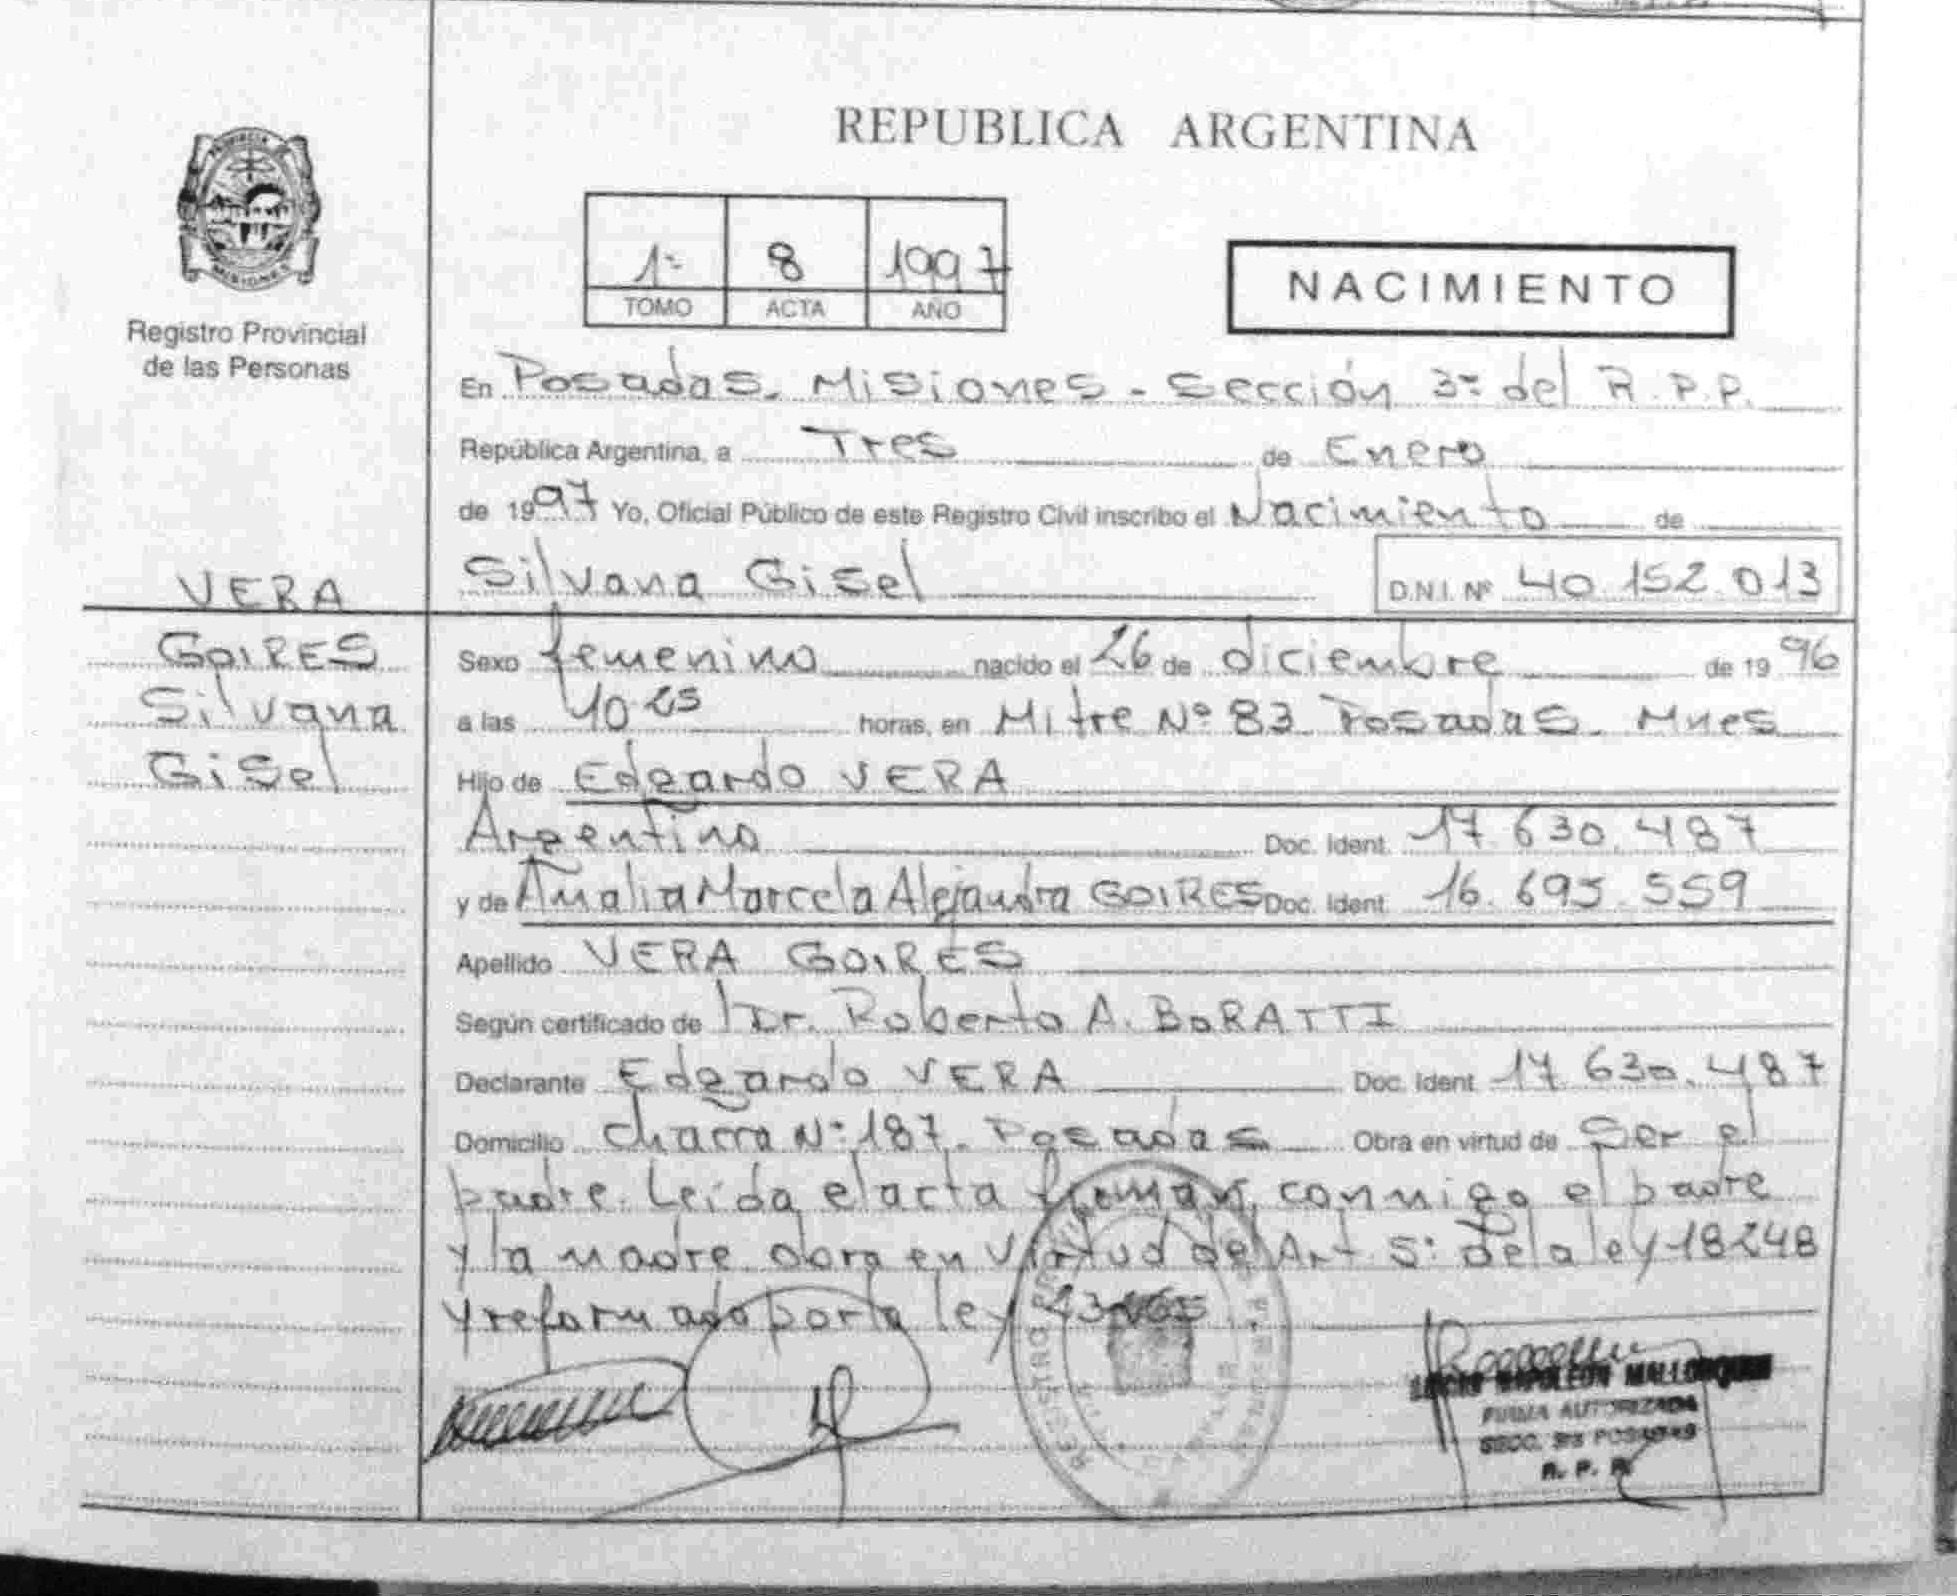 REPUBLICA ARGENTINA
PROVINCIA
MISIONES
Registro Provincial
de las Personas
1º 8 1997
TOMO ACTA AÑO
NACIMIENTO
En Posadas. Misiones - Sección 3ª del R.P.P.
República Argentina, a Tres de Enero
de 1997 Yo, Oficial Público de este Registro Civil inscribo el Nacimiento de
Silvana Gisel D.N.I. Nº 40.152.013
VERA
GOIRES
Silvana
Gisel
Sexo femenino nacido el 26 de diciembre de 1996
a las 10.25 horas, en Mitre Nº 83 Posadas. Mnes
Hijo de Edgardo VERA
Argentino Doc. Ident. 17.630.487
y de Amalia Marcela Alejandra GOIRES Doc. Ident. 16.695.559
Apellido VERA GOIRES
Según certificado de Dr. Roberto A. BORATTI
Declarante Edgardo VERA Doc. Ident 17.630.487
Domicilio chacra Nº 187. Posadas Obra en virtud de Ser el
padre. Leída el acta firman conmigo el padre
y la madre obra en virtud del Art 5º de la ley 18248
y reformado por la ley
REGISTRO
NAPOLEON
FIRMA AUTORIZADA
SECC. POSADAS
R. P. P.